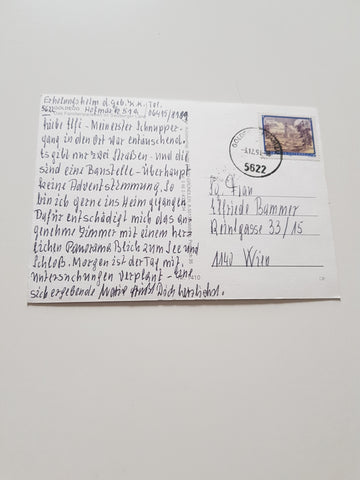 Erholungsheim d. Geb. K.K. Tir.
5622 GOLDEGG Hofmark 59A 06415/8189
Liebe Elfi - Mein erster Schnupper-
gang in den Ort war entäuschend.
Es gibt nur zwei Straßen - und die
sind eine Baustelle - überhaupt
keine Adventstimmung. So
bin ich gerne ins Heim gegangen
Dafür entschädigt mich das an-
genehme Zimmer mit einem herr-
lichen Panorama Blick zum See und
Schloß. Morgen ist der Tag mit
Untersuchungen verplant -
sich ergebende Maria grüßt Dich herzlichst.
5622
Frau
Elfriede Bammer
Reinlgasse 33/15
1140 Wien